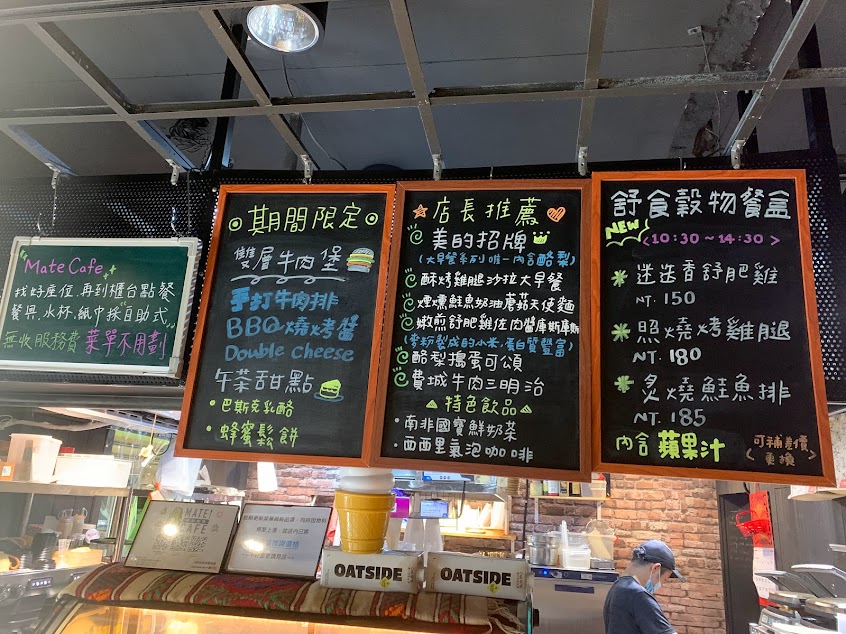 Mate Cafe
找好座位，再到櫃台點餐
餐具、水杯、紙巾採"自助式"
無收服務費 菜單不用劃
期間限定
雙層牛肉堡
手打牛肉排
BBQ燒烤醬
Double cheese
午茶甜點
•巴斯克乳酪
•蜂蜜鬆餅
店長推薦
美的招牌
(大早餐系列唯一內含酪梨)
酥烤雞腿沙拉大早餐
煙燻鮭魚奶油蘑菇天使麵
嫩煎舒肥雞佐肉醬庫斯庫斯
(麥粉製成的小米，蛋白質豐富)
酪梨搗蛋可頌
費城牛肉三明治
特色飲品
•南非國寶鮮奶茶
•西西里氣泡咖啡
舒食穀物餐盒
NEW
<10:30~14:30>
迷迭香舒肥雞
NT. 150
照燒烤雞腿
NT. 180
炙燒鮭魚排
NT. 185
內含蘋果汁
(可補差價
更換)
MATE!
CAFE
OATSIDE
OATSIDE